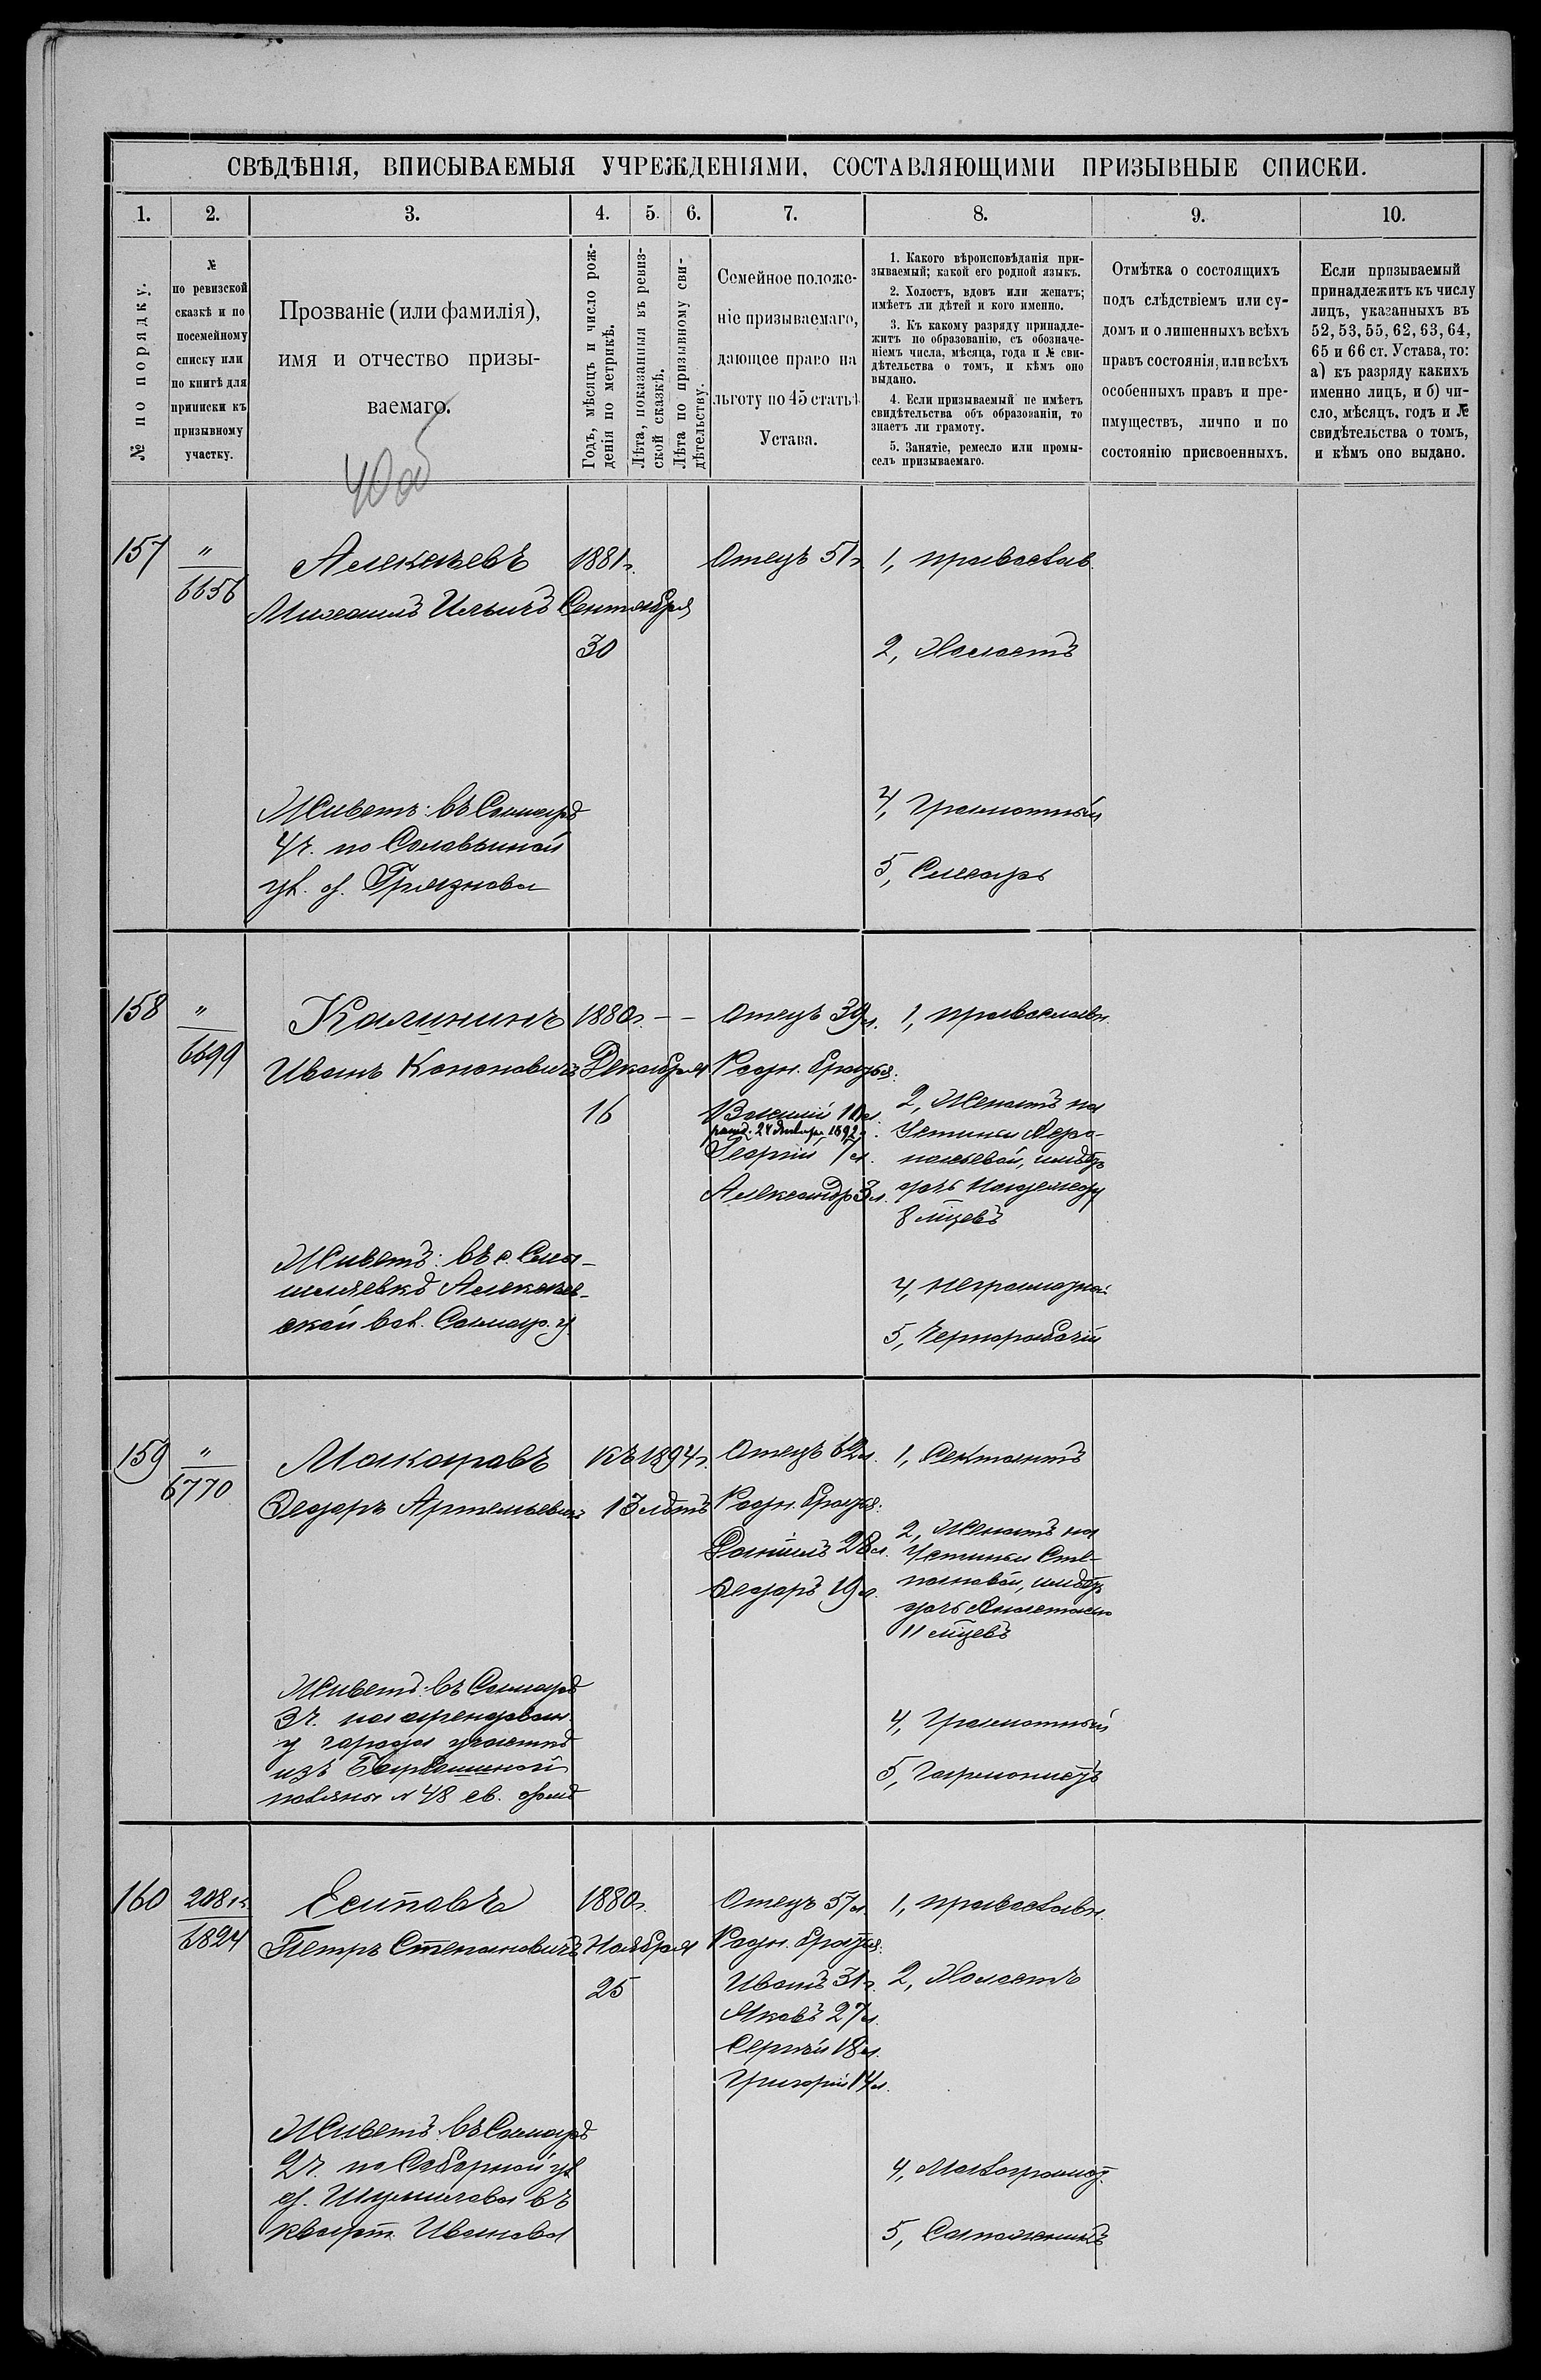 СВѢДѢНІЯ, ВПИСЫВАЕМЫЯ УЧРЕЖДЕНІЯМИ, СОСТАВЛЯЮЩИМИ ПРИЗЫВНЫЕ СПИСКИ.
1. 2. 3. 4. 5. 6. 7. 8. 9. 10.
№ по порядку.
№
по ревизской
сказкѣ и по
посемейному
списку или
по книгѣ для
приписки къ
призывному
участку.
Прозваніе (или фамилія),
имя и отчество призы-
ваемаго.
40 об
Годъ, мѣсяцъ и число рож-
денія по метрикѣ.
Лѣта, показанныя въ ревиз-
ской сказкѣ.
Лѣта по призывному сви-
дѣтельству.
Семейное положе-
ніе призываемаго,
дающее право на
льготу по 45 статьѣ
Устава.
1. Какого вѣроисповѣданія при-
зываемый; какой его родной языкъ.
2. Холостъ, вдовъ или женатъ;
имѣетъ ли дѣтей и кого именно.
3. Къ какому разряду принадле-
житъ по образованію, съ обозначе-
ніемъ числа, мѣсяца, года и № сви-
дѣтельства о томъ, и кѣмъ оно
выдано.
4. Если призываемый не имѣетъ
свидѣтельства объ образованіи, то
знаетъ ли грамоту.
5. Занятіе, ремесло или промы-
селъ призываемаго.
Отмѣтка о состоящихъ
подъ слѣдствіемъ или су-
домъ и о лишенныхъ всѣхъ
правъ состоянія, или всѣхъ
особенныхъ правъ и пре-
имуществъ, лично и по
состоянію присвоенныхъ.
Если призываемый
принадлежитъ къ числу
лицъ, указанныхъ въ
52, 53, 55, 62, 63, 64,
65 и 66 ст. Устава, то:
а) къ разряду какихъ
именно лицъ, и б) чи-
сло, мѣсяцъ, годъ и №
свидѣтельства о томъ,
и кѣмъ оно выдано.
157
"
6656
Алексѣевъ
Михаилъ Ильичъ
Живетъ: въ Самарѣ
4 ч. по Соловьиной
ул. д. Грязнова
1881 г.
Сентября
30
Отецъ 51 г.
1, православ.
2, Холостъ
4, Грамотный
5, Слесарь
158
"
6699
Калининъ
Иванъ Кононовичъ
Живетъ: въ с. Смы-
шляевкѣ Алексѣев-
ской вол. Самар. у.
1880 г. - -
Декабря
16
Отецъ 39 л.
Родн. братья:
Василій 10 л.
рожд. 24 Января 1892 г.
Георгій 7 л.
Александръ 3 л.
1, православн.
2, Женатъ на
Устиньи
имѣетъ
дочь Надежду
8 мцевъ
4, Неграмотный
5, Чернорабочій
159
"
6770
Макаровъ
Ѳедоръ Артемьевичъ
Живетъ: въ Самарѣ
3 ч. на арендован.
у города участкѣ
изъ
поляны № 48 св. домѣ
къ 1894 г.
13 лѣтъ
Отецъ 62 л.
Родн. братья:
Даніилъ 28 л.
Ѳедоръ 19 л.
1, Сектантъ
2, Женатъ на
Устиньи Сте-
пановой, имѣетъ
дочь Анастасію
11 мцевъ
4, Грамотный
5, Гармонистъ
160
208 г.
6824
Есиповъ
Петръ Степановичъ
Живетъ: въ Самарѣ
2 ч. по Соборной ул.
д. въ
кварт. Иванова
1880 г.
Ноября
25
Отецъ 57 л.
Родн. братья:
Иванъ 31 г.
Яковъ 27 л.
Сергѣй 18 л.
Григорій 14 л.
1, православн.
2, Холостъ
4, Малограмот.
5, Сапожникъ